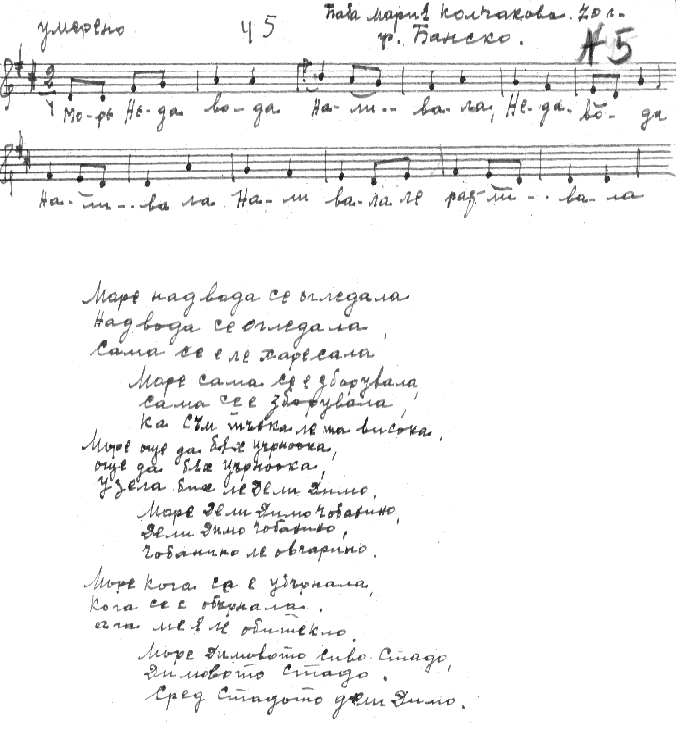 Баба Мария Колчакова. 70 г.
умерено ч5 гр. Банско. №5
Мо-ре Не-да во-да На-ли-- ва-ла, Не-да во-да
На-ли-- ва ла На-ли ва-ла ле раз-ли-- ва-ла
Море над вода се огледала
Над вода се огледала,
Сама се е ле харесала
Море сама се е зборувала,
сама се е зборувала,
Ка съм тънка ле та висока,
Море още да бех църноока,
още да бех църноока,
узела бих ле Дели Димо,
Море Дели Димо Чобанино,
Дели Димо Чобанино,
Чобанино ле овчарино.
Море Кога се е убърнала,
Кога се е обърнала.
Море Димовото сиво стадо,
Димовото стадо.
Сред стадото дели Димо.